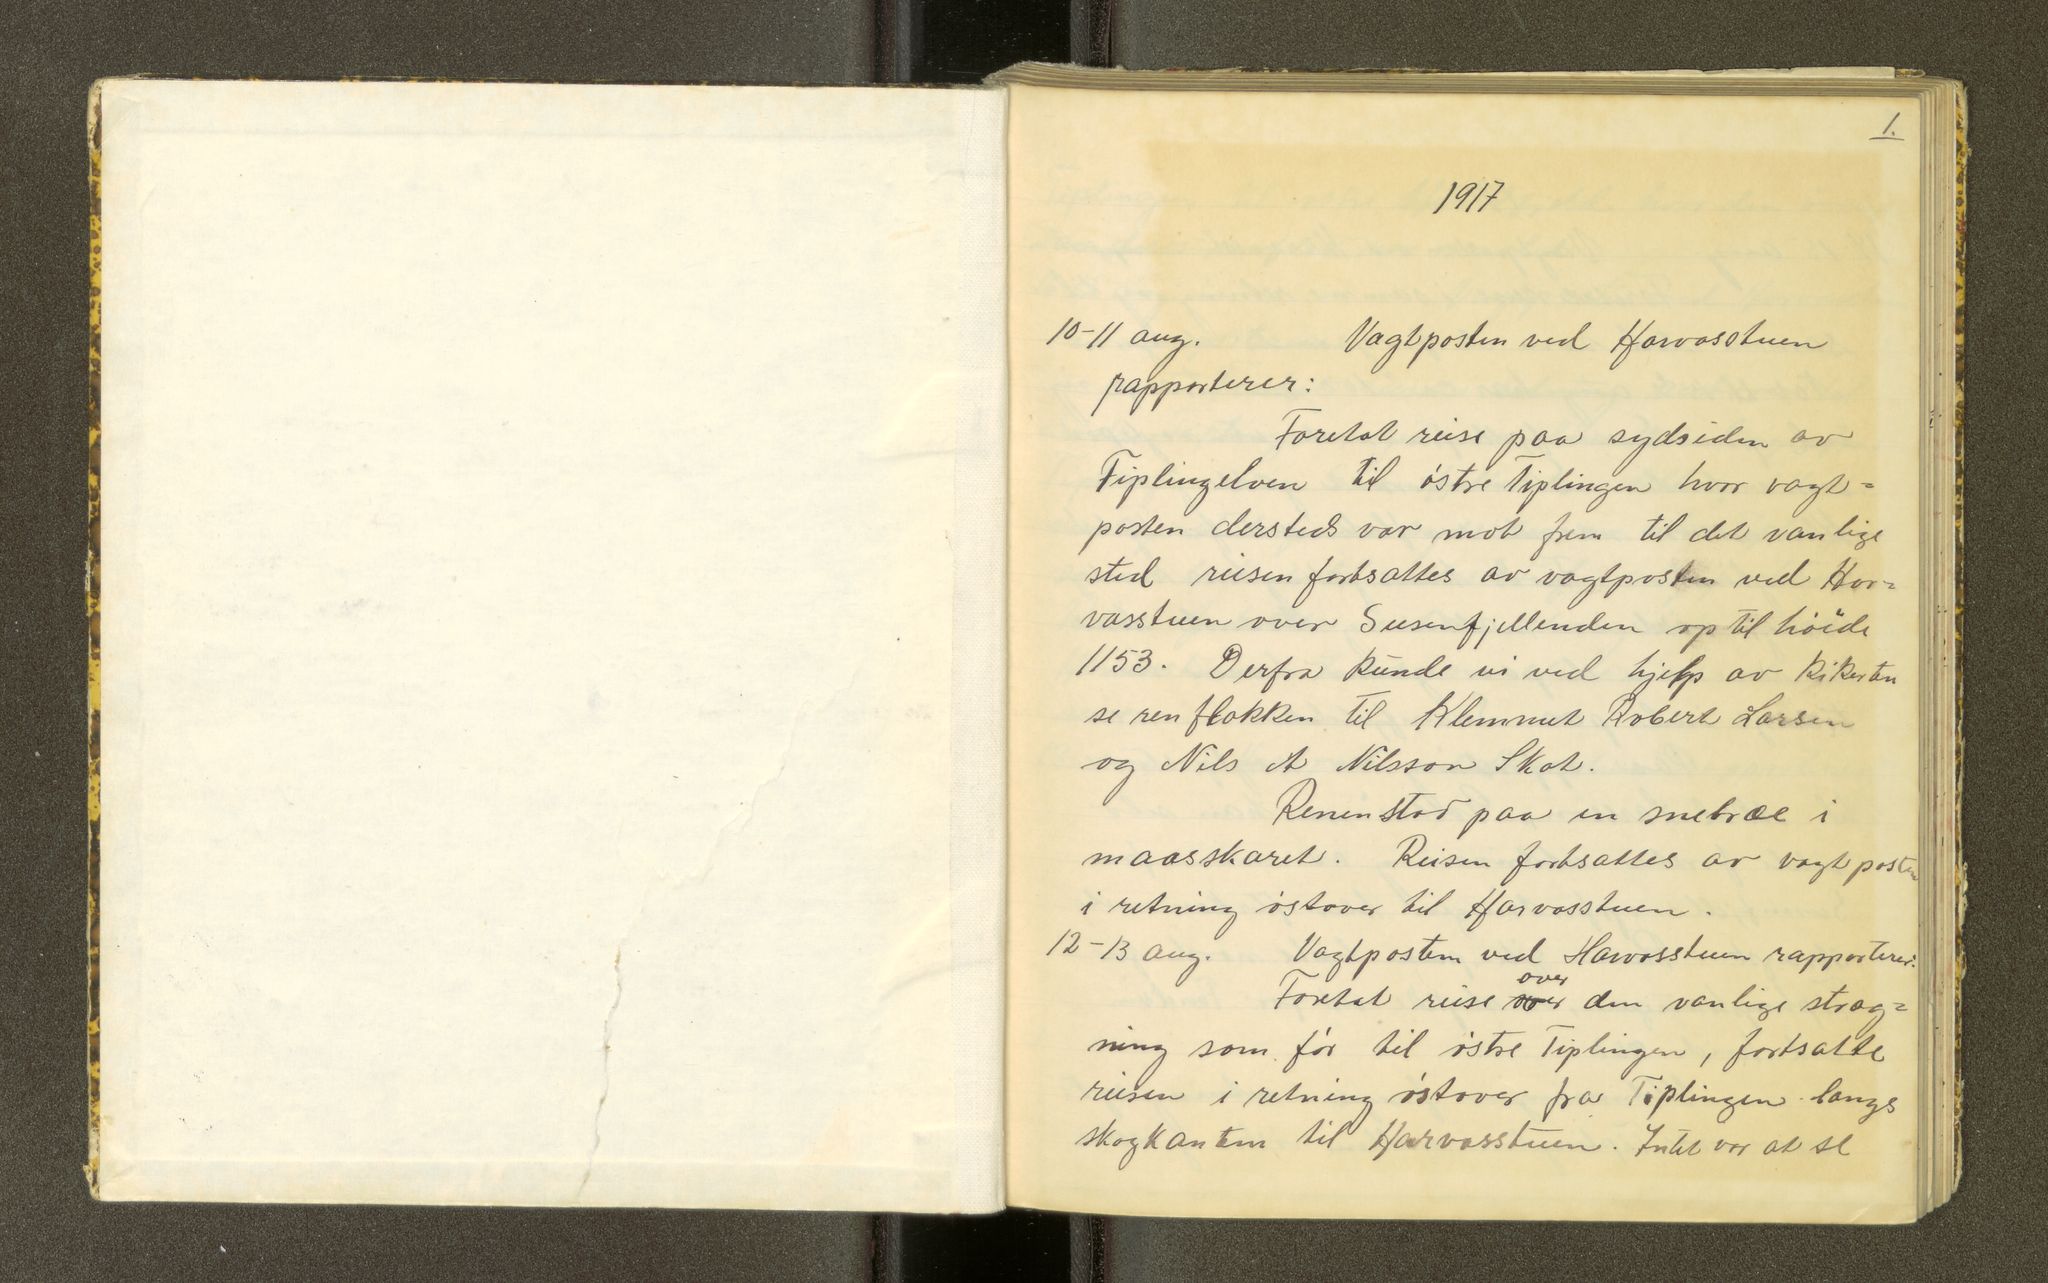 1.
1917
10-11 aug. Vagtposten ved Harvasstuen
rapporterer:
Foretat reise paa sydsiden av
Tiplingelven til østre Tiplingen hvor vagt=
posten dersteds var møt frem til det vanlige
sted reisen fortsattes av vagtposten ved Har=
vasstuen over Susenfjellenden op til høide
1153. Derfra kunde vi ved hjelp av kikerten
se renflokken til Klemmet Robert Larsen
og Nils A Nilsson Skot.
Renen stod paa en snebræ i
maasskaret. Reisen fortsattes av vagtposten
i retning østover til Harvasstuen.
12-13 aug. Vagtposten ved Harvasstuen rapporterer:
over
Foretat reise over den vanlige stræg=
ning som før til østre Tiplingen, fortsatte
reisen i retning østover fra Tiplingen langs
skogkanten til Harvasstuen. Intet var at se